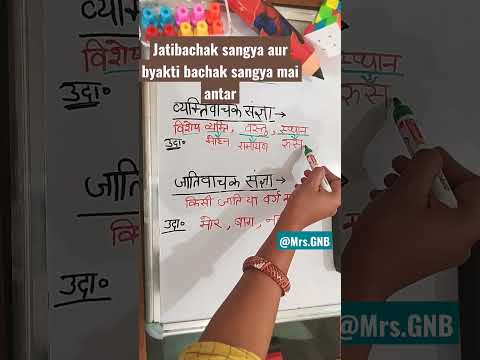 Jatibachak sangya aur
byakti bachak sangya mai
antar
व्यक्तिवाचक संज्ञा →
विशेष व्यक्ति, वस्तु, स्थान
उदा० मोहन रामायण रूस
जातिवाचक संज्ञा →
किसी जाति या वर्ग
उदा० मोर, बाग,
@Mrs.GNB
विशेष
उदा०
उदा०
स्थान
रूस
@Mrs.GNB